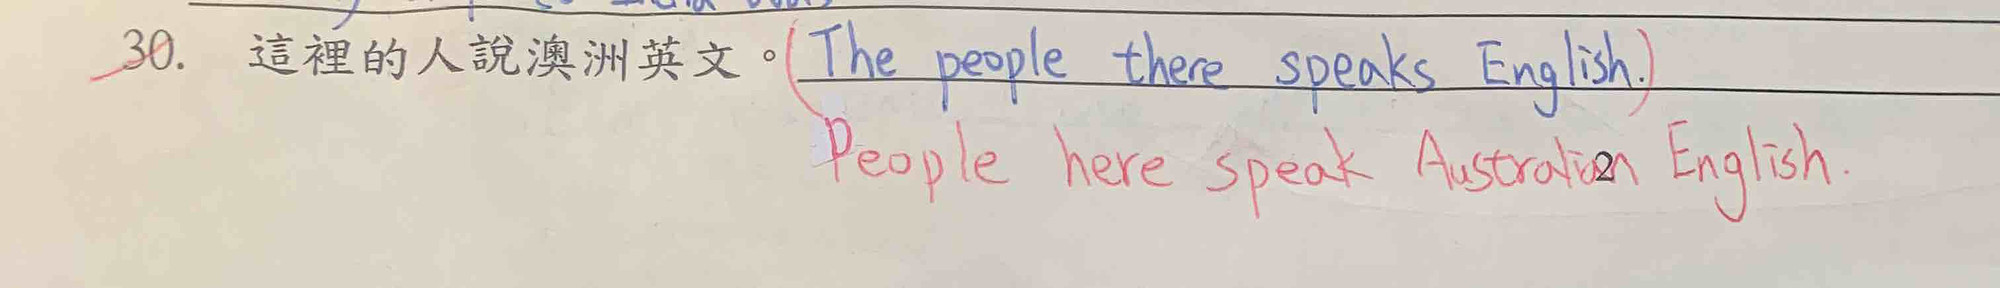 30. 這裡的人說澳洲英文。(The people there speaks English.)
People here speak Australian English.